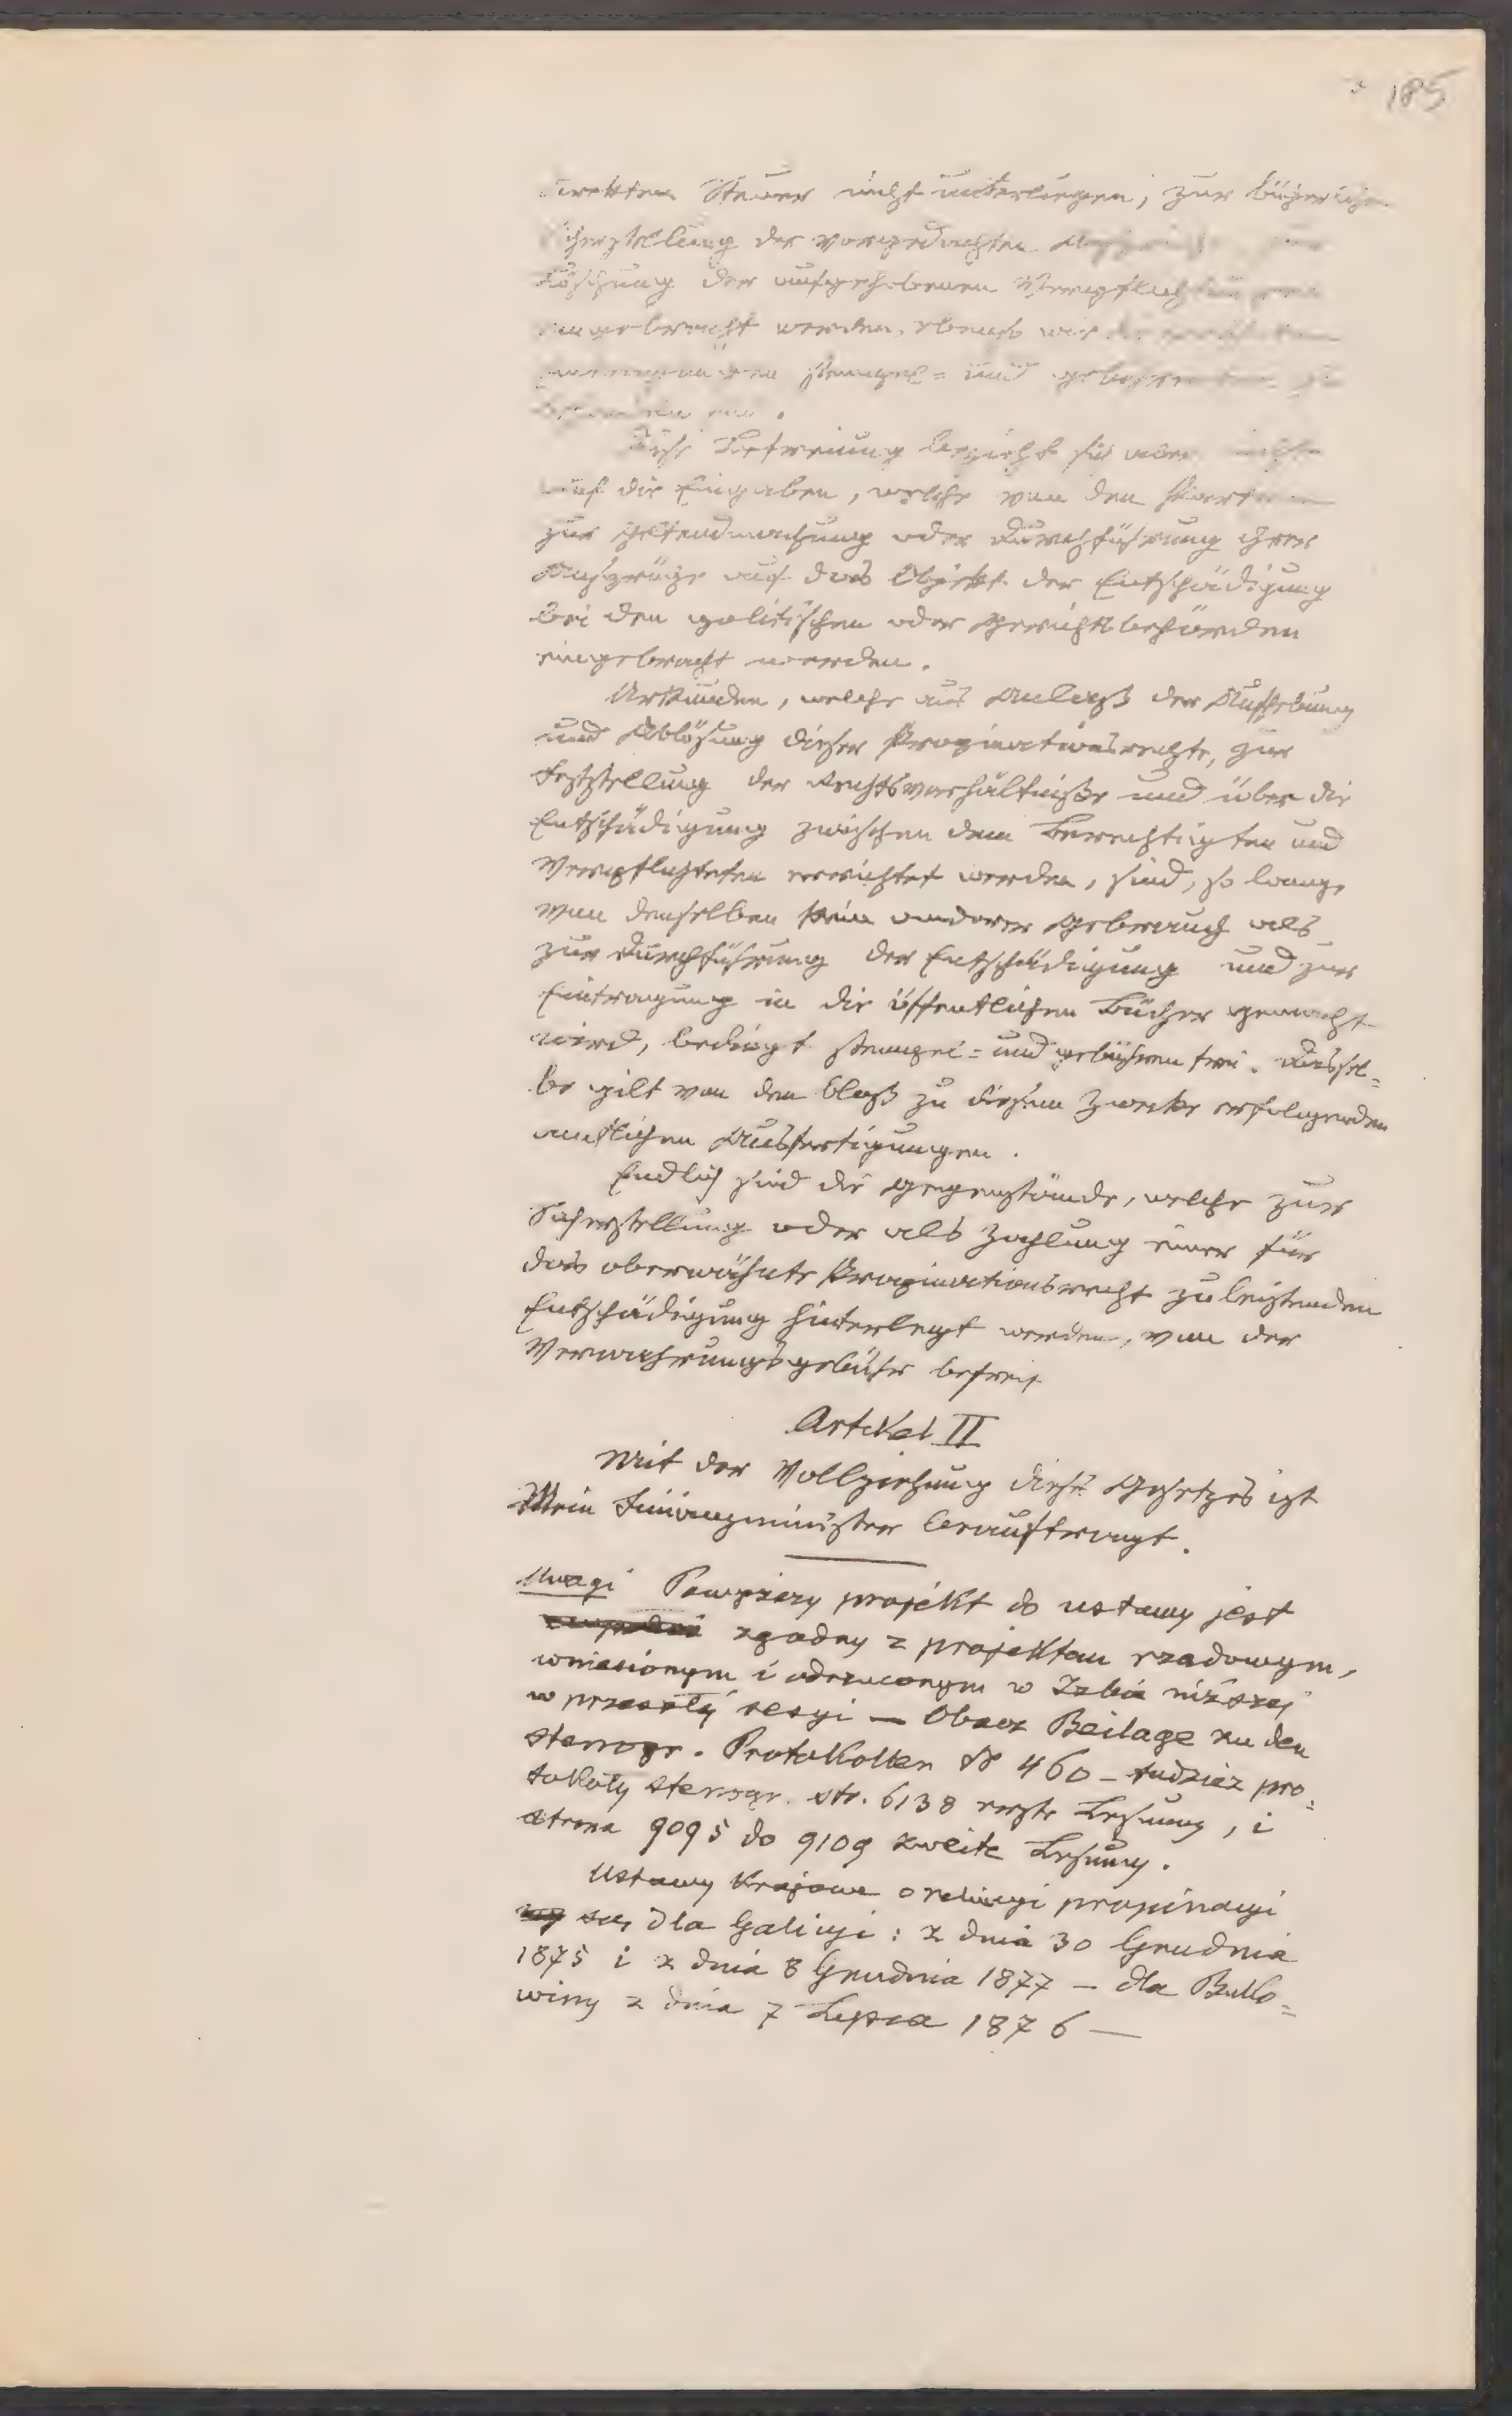 185
direkten Steuer nicht unterliegen, zur bücherlichen
Sicherstellung der vorgedachten
Löschung der aufgehobenen
eingebracht werden, ebenso wie
Stempel= und
Diese Befreiung bezieht sich aber nicht
auf die Eingaben, welche von den
zur Geltendmachung oder Durchführung ihrer
Ansprüche auf das Objekt der Entschädigung
bei den politischen oder Gerichtsbehörden
eingebracht werden.
Urkunden, welche aus Anlaß der Aufhebung
und Ablösung dieser Propinationsrechte, zur
Feststellung der Rechtsverhältniße und über die
Entschädigung zwischen dem Berechtigten und
Verpflichteten errichtet werden, sind, so lange
von denselben kein anderer Gebrauch als
zur Durchführung der Entschädigung und zur
Eintragung in die öffentlichen Bücher gemacht
wird, bedingt stempel= und gebühren frei. Dassel=
be gilt von den bloß zu diesem Zwecke erfolgenden
amtlichen Ausfertigungen.
Endlich sind die Gegenstände, welche zur
Sicherstellung oder als Zahlung einer für
das oberwähnte Propinationsrecht zu leistenden
Entschädigung hinterlegt werden, von der
Verwahrungsgebühr befreit
Artikel II
Mit der Vollziehung dieses Gesetzes ist
Mein Finanzminister beauftragt.
Uwagi Powyższy projekt do ustawy jest
zgodny z projektem rządowym,
wniesionym i odrzuconym w Izbie niższej
w przeszłej sesyi — Obacz Beilage zu den
stenogr. Protokollen № 460 – tudzież pro=
tokóły stenogr. str. 6138 erste Lesung, i
strona 9095 do 9109 zweite Lesung.
Ustawy krajowe o relucyi propinacyi
są dla Galicyi: z dnia 30 Grudnia
1875 i z dnia 8 Grudnia 1877 – dla Buko=
winy z dnia 7 Lipca 1876 —